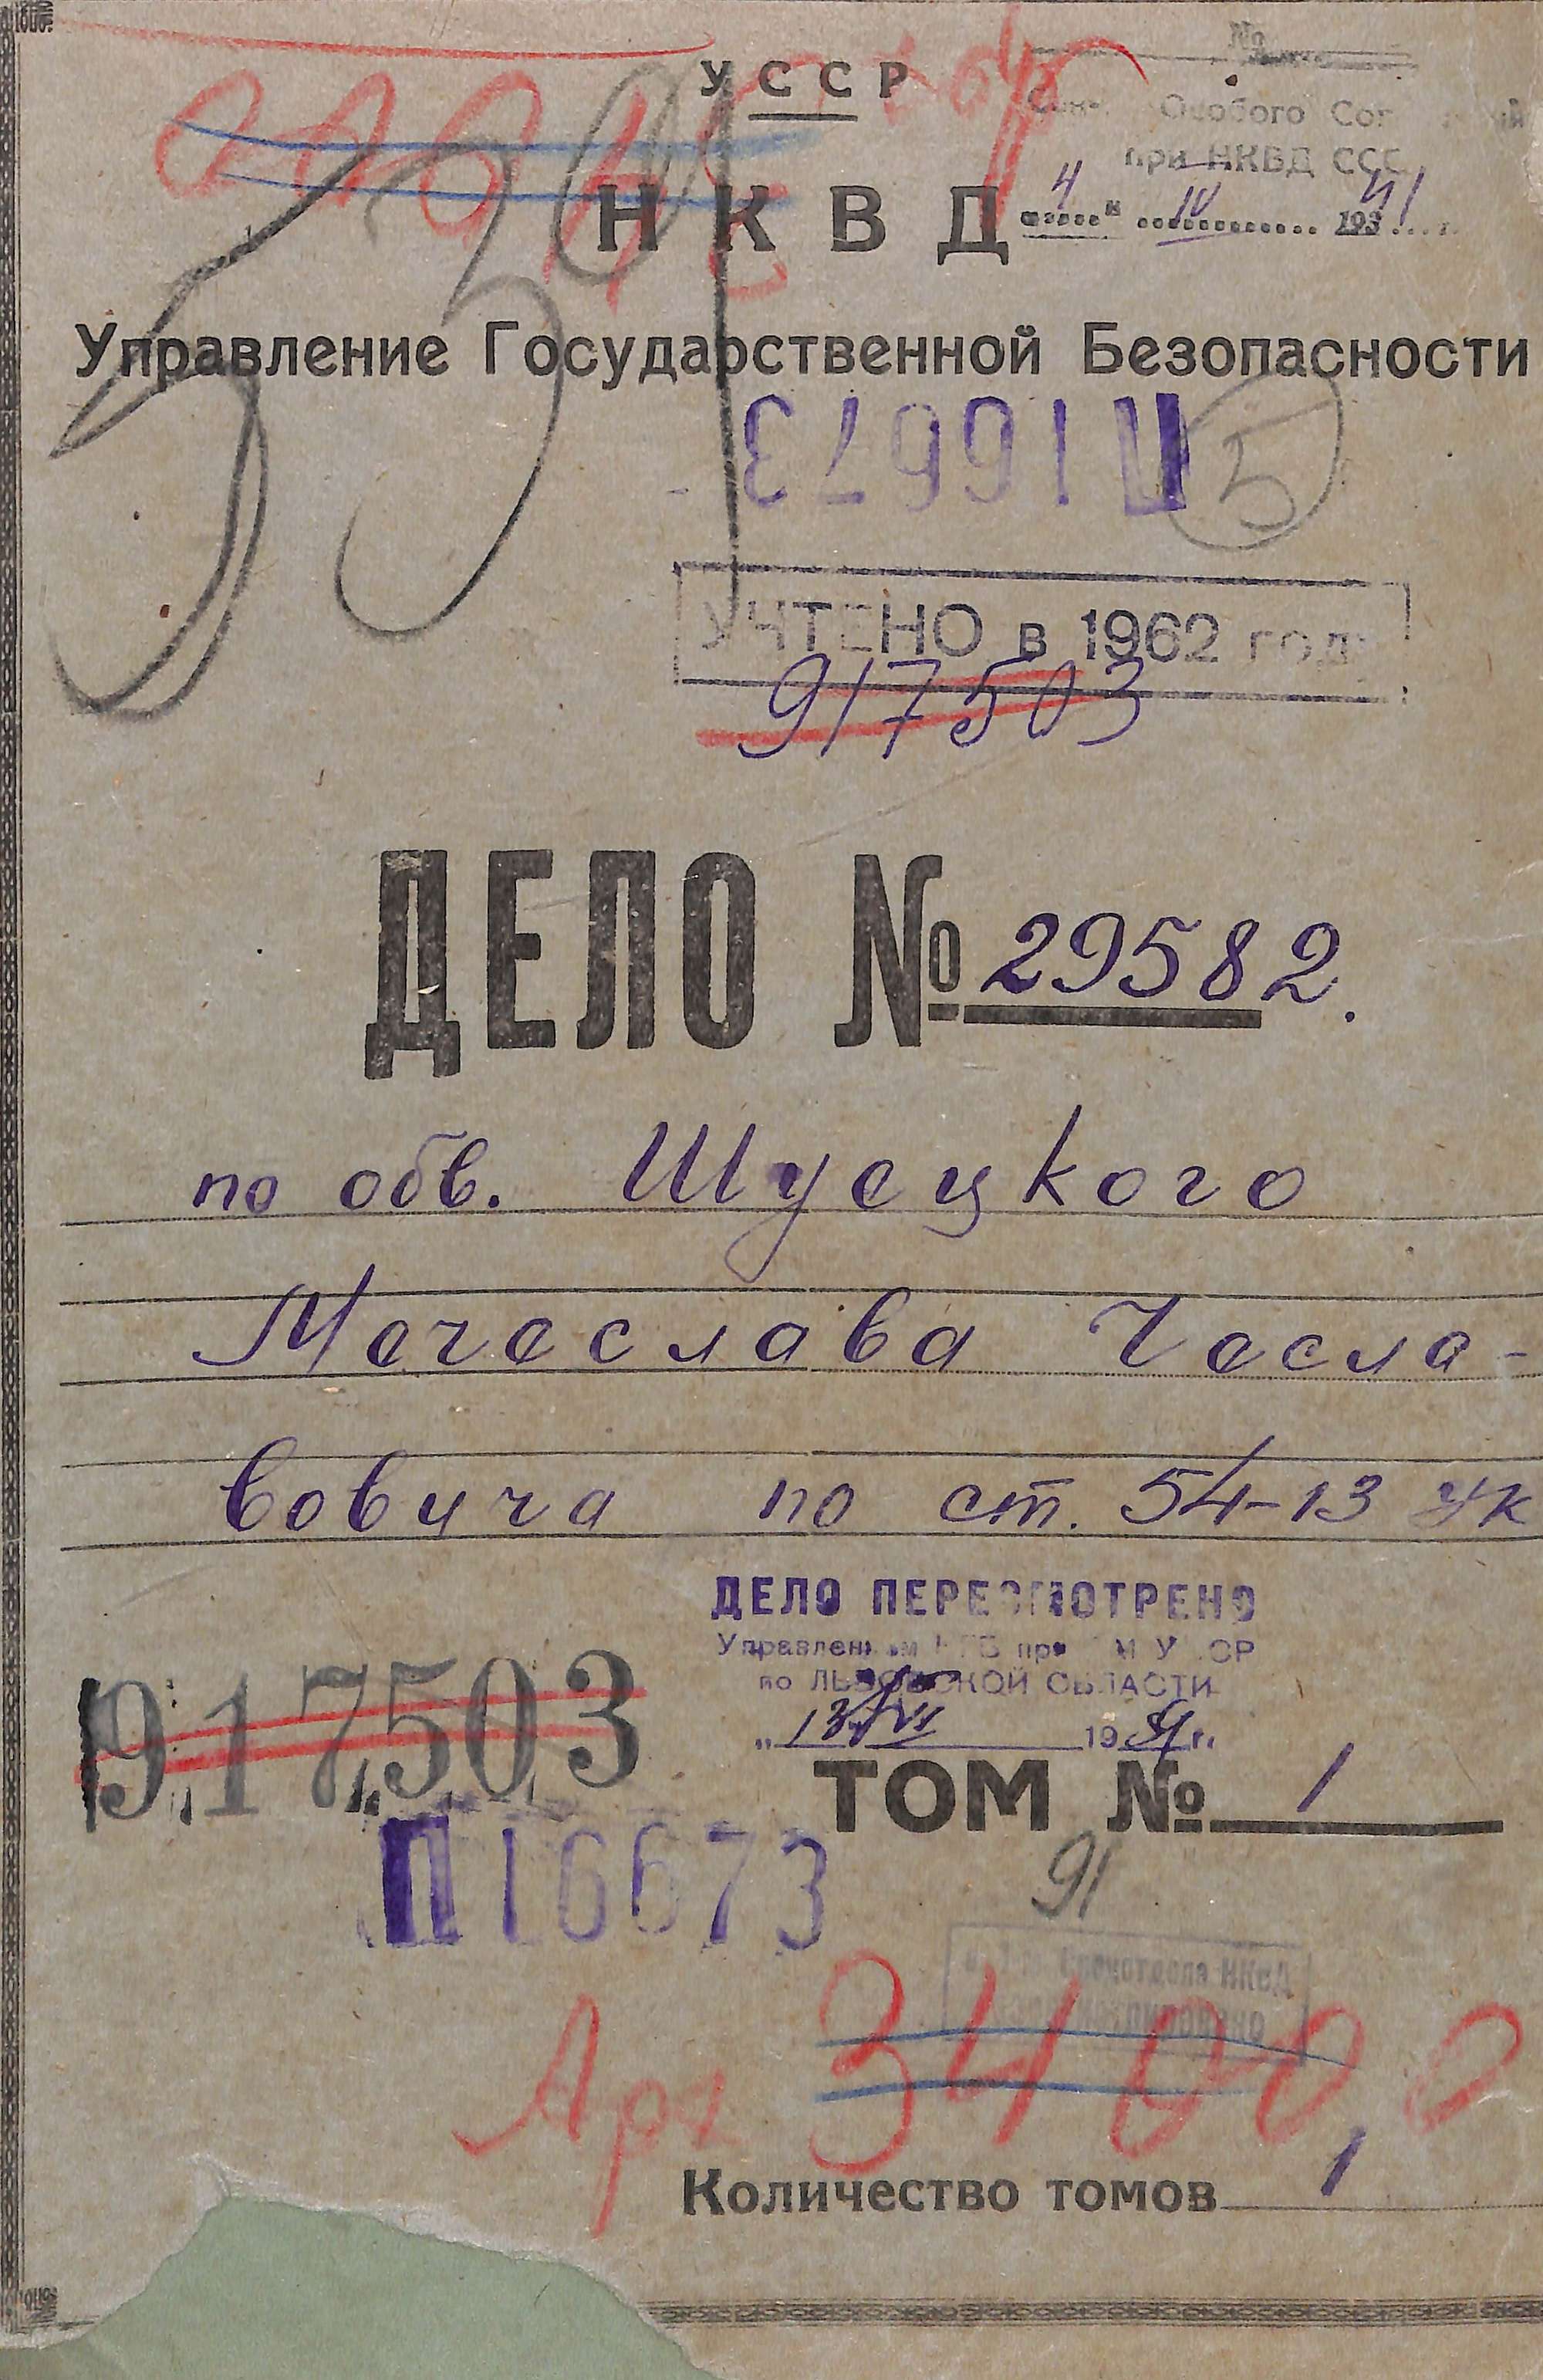 №
УССР
Особого
при НКВД СССР
НКВД
4 IV 1941
Управление Государственной Безопасности
П16673
5
УЧТЕНО в 1962 году
917503
ДЕЛО № 29582.
по обв. Шусцкого
Мечеслава Чесла-
вовича по ст. 54-13 УК
ДЕЛО ПЕРЕСМОТРЕНО
Управлением КГБ при СМ УССР
по ЛЬВОВСКОЙ ОБЛАСТИ
917503
ТОМ № 1
П16673
91
Спецотдела НКВД
Арх 3400
Количество томов 1